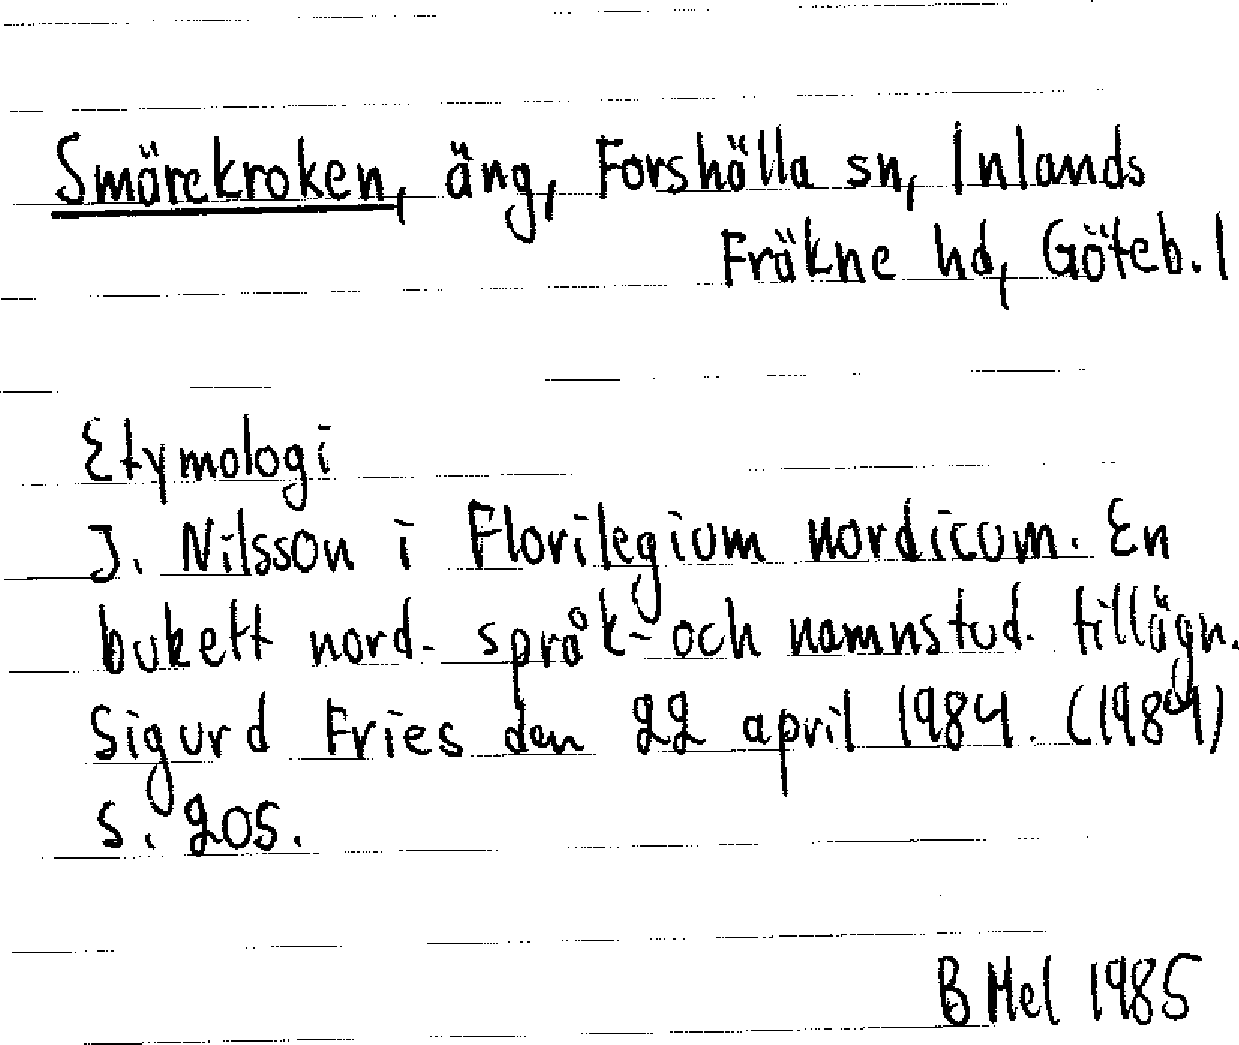 Smärekroken, äng, Forshälla sn, Inlands
Fräkne hd, Göteb. l
Etymologi
J. Nilsson i Florilegium nordicum. En
bukett nord. språk- och namnstud. tillägn.
Sigurd Fries den 22 april 1984. (1984)
s. 205.
B Mel 1985